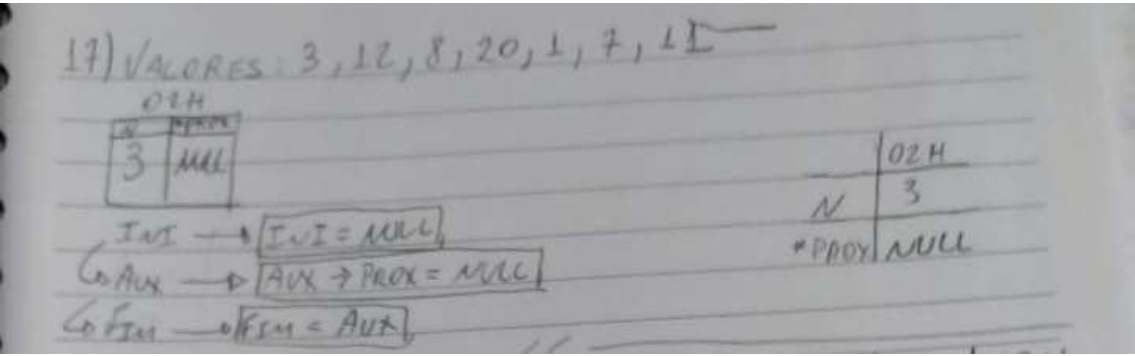 17) VALORES: 3, 12, 8, 20, 1, 7, 11
02H
N *PROX
3 NULL
INI → INI = NULL
↳ AUX → AUX → PROX = NULL
↳ FIM → FIM = AUX
02H
N 3
*PROX NULL